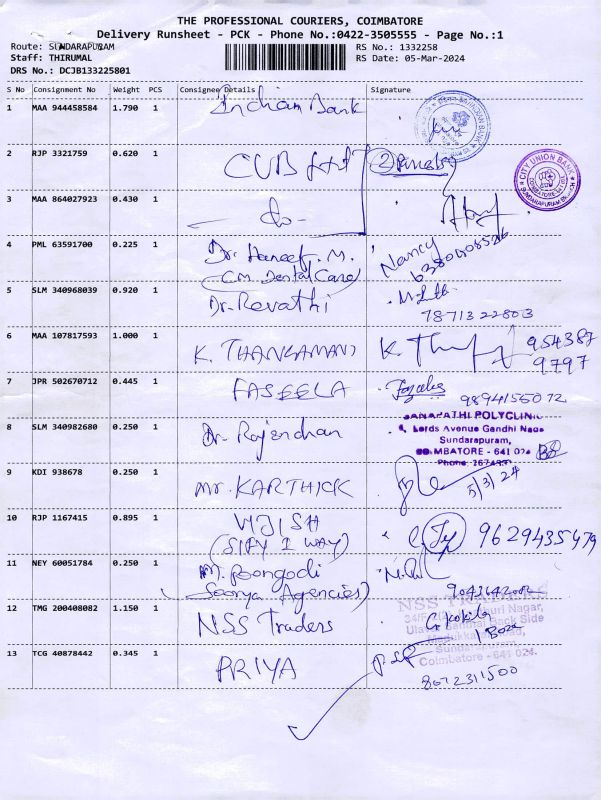 THE PROFESSIONAL COURIERS, COIMBATORE
Delivery Runsheet - PCK - Phone No.:0422-3505555 - Page No.:1
Route: SUNDARAPURAM
RS No.: 1332258
Staff: THIRUMAL
RS Date: 05-Mar-2024
DRS No.: DCJB133225801
S No Consignment No Weight PCS Consignee Details Signature
1 MAA 944458584 1.790 1 Indian Bank
2 RJP 3321759 0.620 1 CUB
CITY UNION BANK
SUNDARAPURAM BRANCH
3 MAA 864027923 0.430 1 - do -
4 PML 63591700 0.225 1 Dr. Haneef. M. Nancy
(CM Dental Care)
5 SLM 340968039 0.920 1 Dr. Revathi
78713 22803
6 MAA 107817593 1.000 1 K. THANGAMANI K. Thang
954387
9797
7 JPR 502670712 0.445 1 FASEELA
9894155012
GANAPATHI POLYCLINIC
4, Lords Avenue Gandhi Naga
Sundarapuram,
COIMBATORE - 641 024
8 SLM 340982680 0.250 1 Dr. Rajendran
9 KDI 938678 0.250 1 Mr. KARTHICK
5/3/24
10 RJP 1167415 0.895 1 VIJISH 9629435479
(SIFY 2 WAY)
11 NEY 60051784 0.250 1 M. Poongodi
(Soorya Agencies)
9043642002
12 TMG 200408082 1.150 1 NSS Traders
NSS TRADERS
Coimbatore - 641 024.
13 TCG 40878442 0.345 1 PRIYA
8072311500